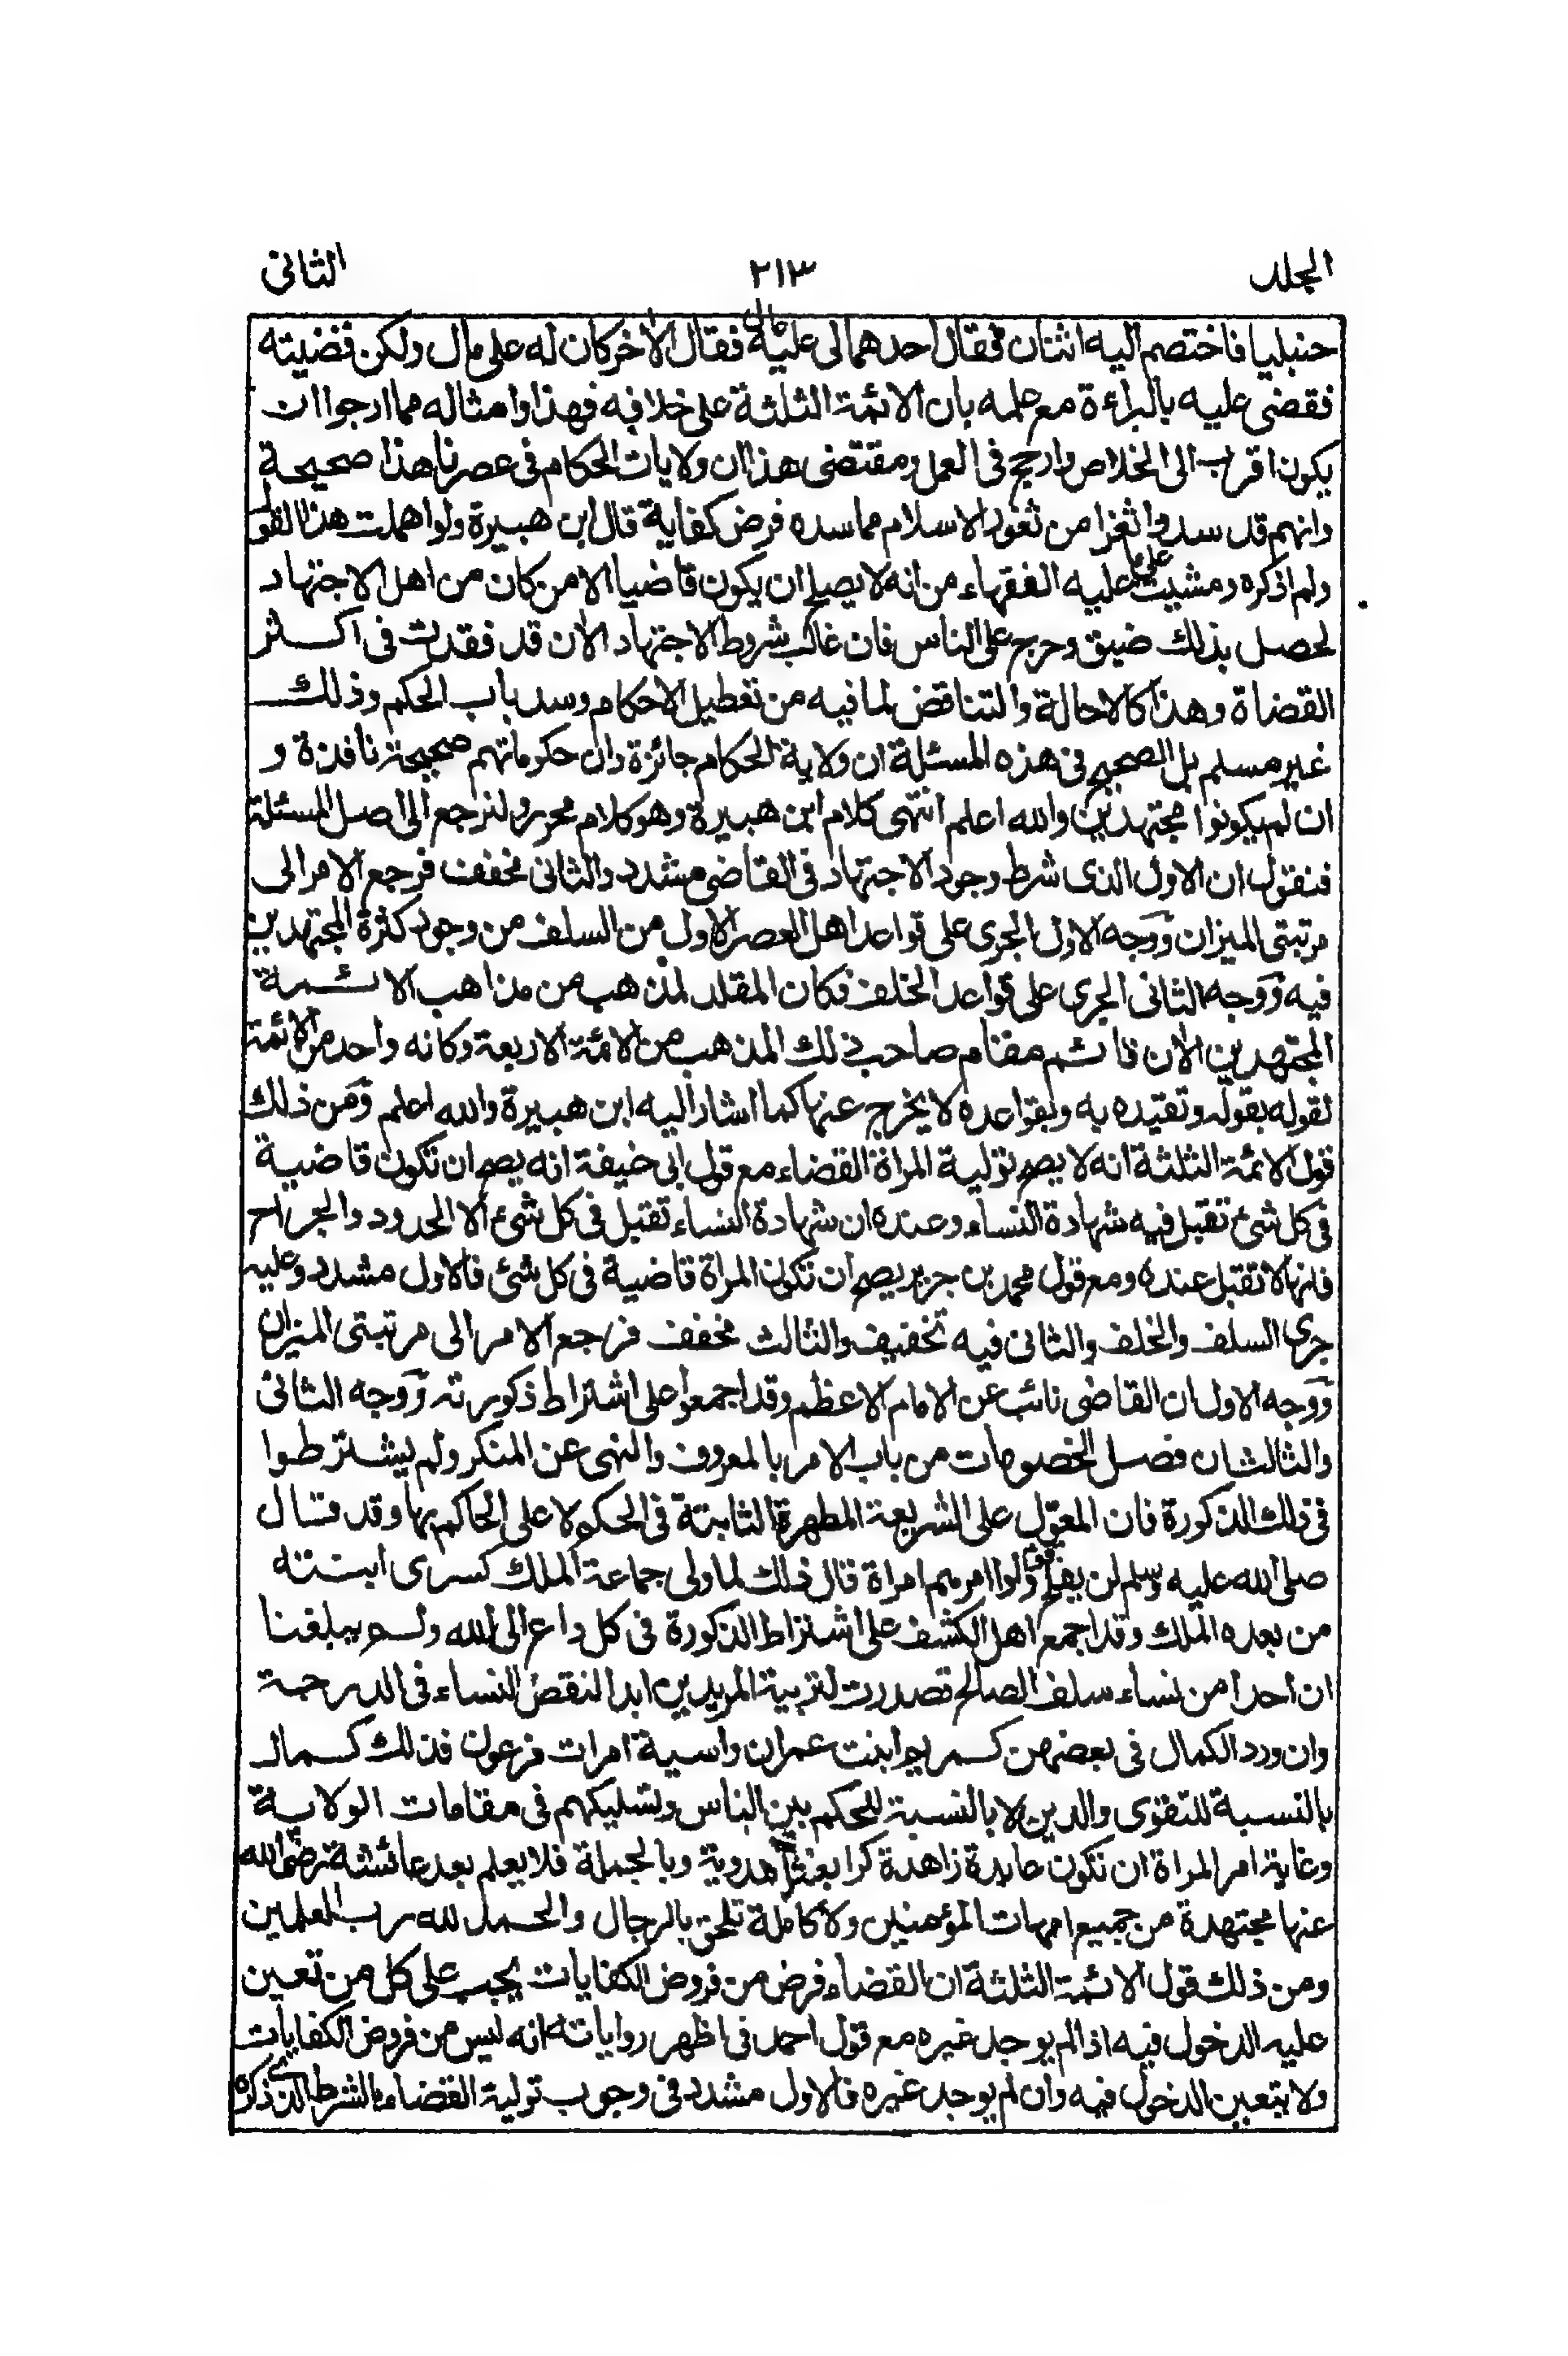 المجلد ٢١٣ الثانى
حنبليا فاختصم اليه اثنان فقال احدهما لى عليه مال فقال الاخر كان له على مال ولكن قضيته
فقضى عليه بالبراءة مع علمه بان الائمة الثلثة على خلافه فهذا وامثاله مما ارجوا ان
يكون اقرب الى الخلاص وارجح فى العمل ومقتضى هذا ان ولايات الحكام فى عصرنا هذا صحيحة
وانهم قد سدوا ثغرا من ثغور الاسلام مما سده فرض كفاية قال ابن هبيرة ولو اهملت هذا القول
ولم اذكره ومشيت على عليه الفقهاء من انه لا يصلح ان يكون قاضيا الا من كان من اهل الاجتهاد
لحصل بذلك ضيق وحرج على الناس فان غالب شروط الاجتهاد الان قد فقدت فى اكثر
القضاة وهذا كالاحالة والتناقض لما فيه من تعطيل الاحكام وسد باب الحكم وذلك
غير مسلم بل الصحيح فى هذه المسئلة ان ولاية الحكام جائزة وان حكوماتهم صحيحة نافذة و
ان لم يكونوا مجتهدين والله اعلم انتهى كلام ابن هبيرة وهو كلام محرر ولنرجع الى اصل المسئلة
فنقول ان الاول الذى شرط وجود الاجتهاد فى القاضى مشدد والثانى مخفف فرجع الامر الى
مرتبتى الميزان ووجه الاول الجرى على قواعد اهل العصر الاول من السلف من وجود كثرة المجتهدين
فيه ووجه الثانى الجرى على قواعد الخلف فكان المقلد لمذهب من مذاهب الائمة
المجتهدين الان قائم مقام صاحب ذلك المذهب من الائمة الاربعة وكانه واحد من الائمة
لقوله بقوله وتقيده به وبقواعده لا يخرج عنها كما اشار اليه ابن هبيرة والله اعلم ومن ذلك
قول الائمة الثلثة انه لا يصح تولية المراة القضاء مع قول ابى حنيفة انه يصح ان تكون قاضية
فى كل شئ تقبل فيه شهادة النساء وعنده ان شهادة النساء تقبل فى كل شئ الا الحدود والجراح
فانها لا تقبل عنده ومع قول محمد بن جرير يصح ان تكون المراة قاضية فى كل شئ فالاول مشدد وعليه
جرى السلف والخلف والثانى فيه تخفيف والثالث مخفف فرجع الامر الى مرتبتى الميزان
ووجه الاول ان القاضى نائب عن الامام الاعظم وقد اجمعوا على اشتراط ذكورته ووجه الثانى
والثالث ان فصل الخصومات من باب الامر بالمعروف والنهى عن المنكر ولم يشترطوا
فى ذلك الذكورة فان المعول على الشريعة المطهرة الثابتة فى الحكم لا على الحاكم بها وقد قال
صلى الله عليه وسلم لن يفلح قوم ولوا امرهم امراة قال ذلك لما ولى جماعة الملك كسرى ابنته
من بعده الملك وقد اجمع اهل الكشف على اشتراط الذكورة فى كل داع الى الله ولم يبلغنا
ان احدا من نساء سلف الصالح تصدرت لتربية المريدين ابدا لنقص النساء فى الدرجة
وان ورد الكمال فى بعضهن كمريم ابنت عمران واسية امرات فرعون فذلك كمال
بالنسبة للتقوى والدين لا بالنسبة للحكم بين الناس وتسليكهم فى مقامات الولاية
وغاية امر المراة ان تكون عابدة زاهدة كرابعة العدوية وبالجملة فلا يعلم بعد عائشة رضى الله
عنها مجتهدة من جميع امهات المؤمنين ولا كاملة تلحق بالرجال والحمد لله رب العلمين
ومن ذلك قول الائمة الثلثة ان القضاء فرض من فروض الكفايات يجب على كل من تعين
عليه الدخول فيه اذا لم يوجد غيره مع قول احمد فى اظهر رواياته انه ليس من فروض الكفايات
ولا يتعين الدخول فيه وان لم يوجد غيره فالاول مشدد فى وجوب تولية القضاء بالشرط الذى ذكره